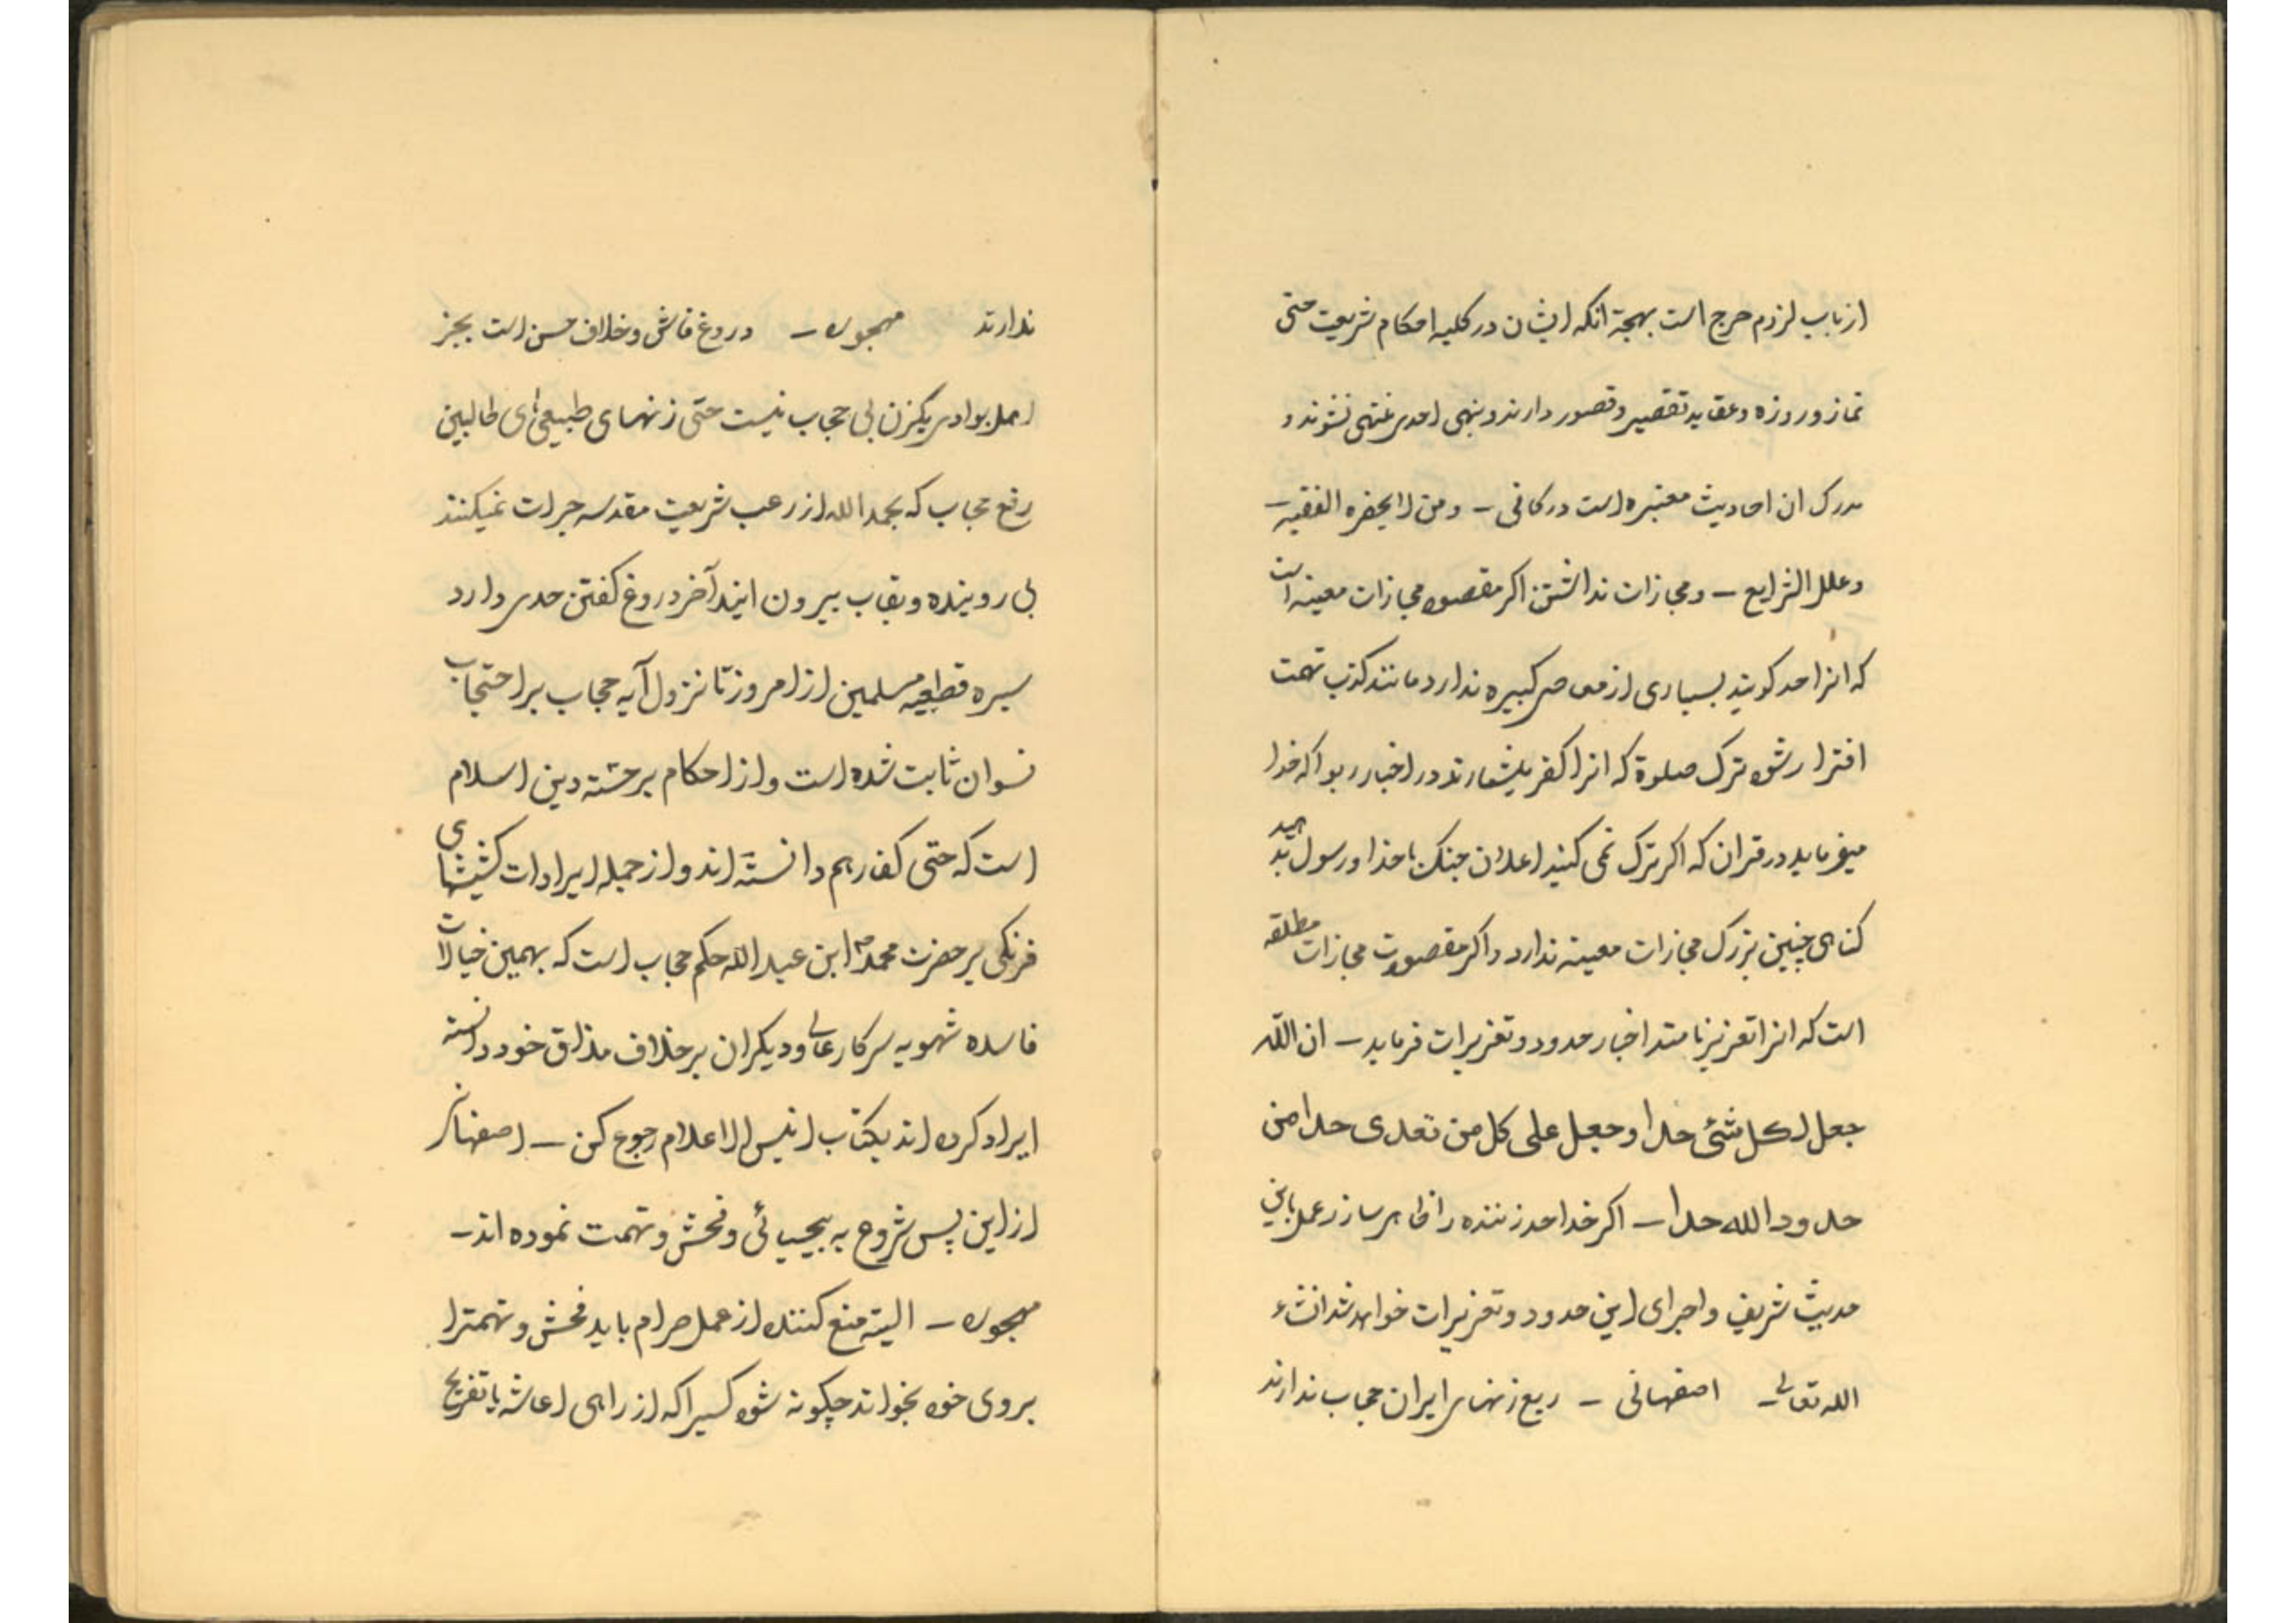 از باب لزوم حرج است بهجة انکه ایشان در کلیه احکام شریعت حتی
نماز و روزه و عقاید تقصیر و قصور دارند و بنهی احدی منتهی نشوند و
مدرک ان احادیث معتبره است در کافی – و من لایحضره الفقیه –
و علل الشرایع – و مجازات نداشتن اکر مقصود مجازات معینه است
که انرا حد کویند بسیاری از معاصی کبیره ندارد مانند کذب تهمت
افترا رشوه ترک صلوة که انرا کفر بشمارند در اخبار ربوا که خدا
میفرماید در قران که اکر ترک نمی کنید اعلان جنک با خدا و رسول بدهید
کناهی چنین بزرک مجازات معینه ندارد و اکر مقصودت مجازات مطلقه
است که انرا تعزیر نامند اخبار حدود و تعزیرات فرماید – ان اللّه
جعل لکل شئی حدا و جعل علی کل من تعدی حدا من
حدود الله حدا – اکر خدا حد زننده را ظاهر سازد عمل باین
حدیث شریف و اجرای این حدود و تعزیرات خواهد شد انشاء
الله تعالی اصفهانی – ربع زنهای ایران حجاب ندارند
ندارند مهجور – دروغ فاشی و خلاف حسن است بجز
اهل بوادی یکزن بی حجاب نیست حتی زنهای طبیعی‌های طالبین
رفع حجاب که بحمد الله از رعب شریعت مقدسه جرات نمیکنند
بی روبنده و نقاب بیرون ایند آخر دروغ کفتن حدی دارد
سیره قطعیه مسلمین از امروز تا نزول آیه حجاب بر احتجاب
نسوان ثابت شده است و از احکام برجسته دین اسلام
است که حتی کفار هم دانسته اند و از جمله ایرادات کشیشهای
فرنکی بر حضرت محمد ص ابن عبد الله حکم حجاب است که بهمین خیالات
فاسده شهویه سرکار عالی و دیکران بر خلاف مذاق خود دانسته
ایراد کرده اند بکتاب انیس الاعلام رجوع کن – اصفهانی
از این پس شروع به بیحیائی و فحش و تهمت نموده اند –
مهجور – البته منع کننده از عمل حرام باید فحش و تهمترا
بروی خود بخواند چکونه شود کسیرا که از راهی اعاشه یا تفریح